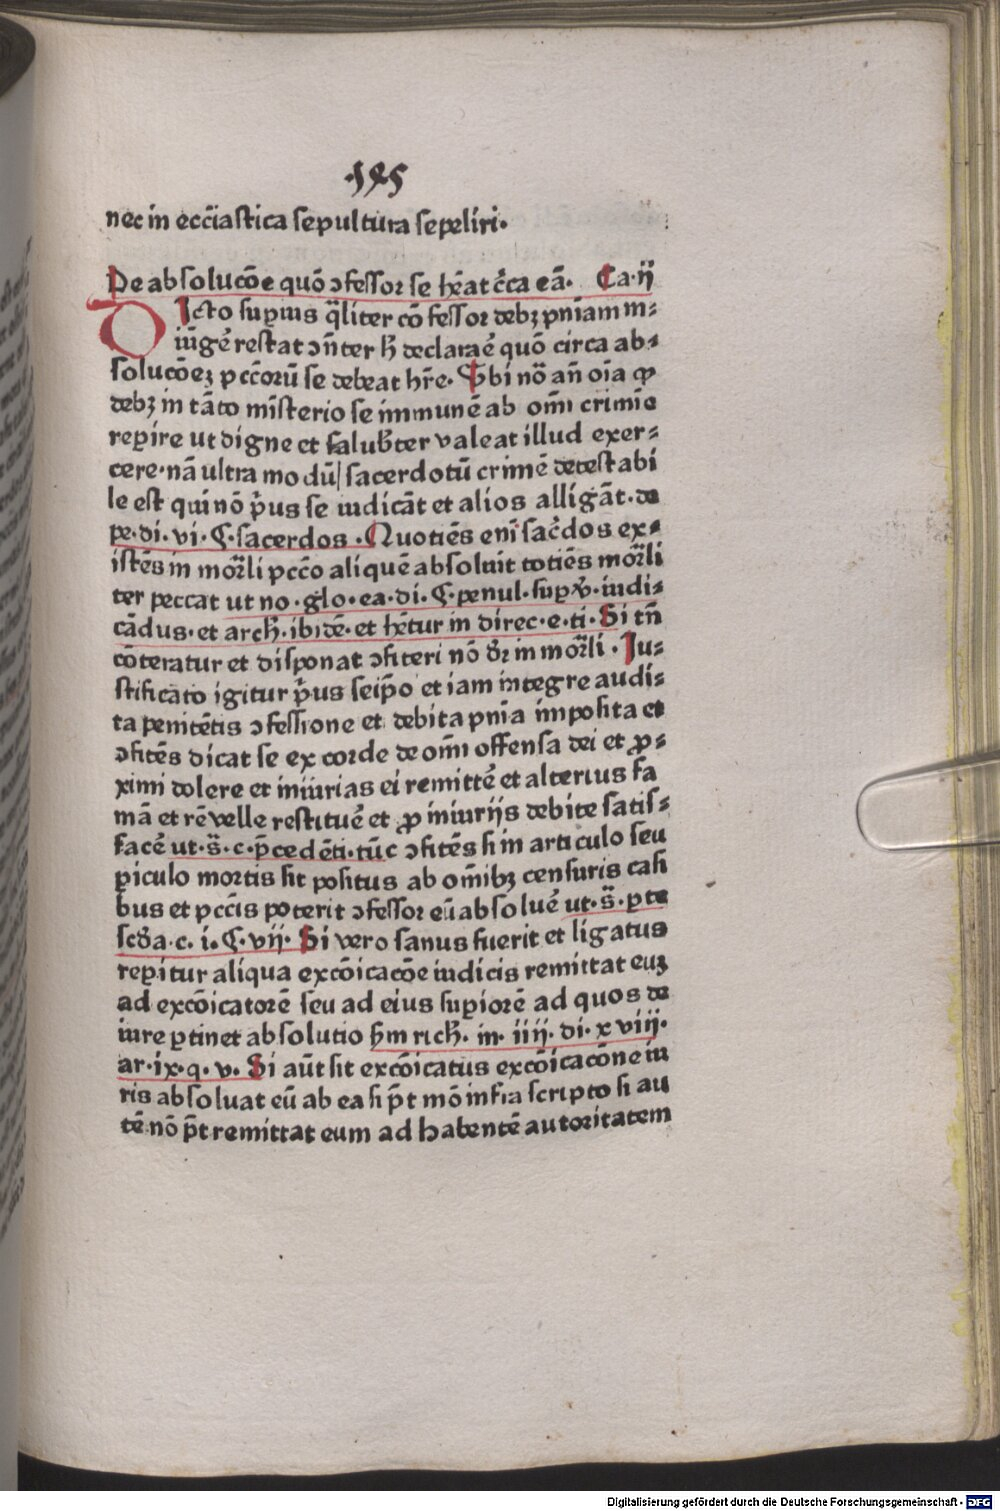 ·195
nec in ecc̄iastica sepultura sepeliri·
De absolucōe quō ↄfessor se hēat c̄ca eā· Ca·ij
DIcto supius q̄liter cōfessor debꝫ pn̄iam in-
iūgē restat ↄn̄ter h̄ declaraē quō circa ab-
solucōeꝫ pccōrū se debeat hr̄e· Ubi nō an̄ oīa ꝙ
debꝫ in tāto mīsterio se immunē ab om̄i crimīe
reꝑire ut digne et salubr̄ter valeat illud exer-
cere·nā ultra modū| sacerdotū crimē detestabi
le est qui nō p̄us se iudicāt et alios alligāt·de
pe·di·vi·ꞔ·sacerdos·Quotiēs enī sac̄dos ex-
istēs in mor̄li pccō aliquē absoluit totiēs mor̄li
ter peccat ut no·glo·ea·di·ꞔ·penul·suꝑ v̄·iudi-
cādus·et arch̄·ibidē·et hētur in direc·e·ti·Si tn̄
cōteratur et disponat ↄfiteri nō dr̄ in mor̄li·Iu-
stificato igitur p̄us seip̄o et iam integre audi-
ta penitētis ↄfessione et debita pn̄ia imposita et
ↄfitēs dicat se ex corde de om̄i offensa dei et ꝓ-
ximi dolere et iniurias ei remittē et alterius fa
mā et rē velle restituē et ꝓ iniurijs debite satis-
facē ut·s̄·c·p̄cedēti·tūc ↄfitēs si in articulo seu
ꝑiculo mortis sit positus ab om̄ibꝫ censuris casi
bus et pccīs poterit ↄfessor eū absoluē ut·s̄·ꝑte
scd̄a·c·i·ꞔ·vij·Si vero sanus fuerit et ligatus
reꝑitur aliqua excōicacōe iudicis remittat euꝫ
ad excōicatorē seu ad eius suꝑiorē ad quos de
iure ꝑtinet absolutio ẜm rich̄·in·iiij·di·xviij·
ar·ix·q·v·Si aūt sit excōicatus excōicacōne iu
ris absoluat eū ab ea si p̄t mō infra scripto si au
tē nō p̄t remittat eum ad habentē autoritatem
Digitalisierung gefördert durch die Deutsche Forschungsgemeinschaft - DFG